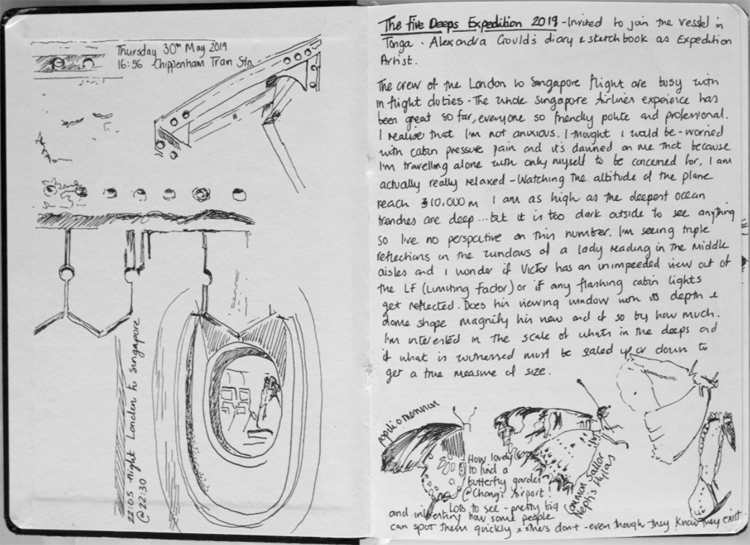 Thursday 30th May 2019
16:56 Chippenham Train Stn.
22:05 night London to Singapore
@ 22:30
The Five Deeps Expedition 2019 - Invited to join the vessel in
Tonga - Alexandra Gould's diary & sketchbook as Expedition
Artist.
The crew of the London to Singapore flight are busy with
in flight duties - The whole Singapore Airlines experience has
been great so far, everyone so friendly polite and professional.
I realise that I'm not anxious. I thought I would be - worried
with cabin pressure pain and it's dawned on me that because
I'm travelling alone with only myself to be concerned for, I am
actually really relaxed - Watching the altitude of the plane
reach 10,000m I am as high as the deepest ocean
trenches are deep... but it is too dark outside to see anything
so I've no perspective on this number. I'm seeing triple
reflections in the windows of a lady reading in the middle
aisles and I wonder if Victor has an unimpeded view out of
the LF (Limiting Factor) or if any flashing cabin lights
get reflected. Does his viewing window with its depth &
dome shape magnify his view and if so by how much.
I'm interested in the scale of whats in the deeps and
if what is witnessed must be scaled up or down to
get a true measure of size.
papilio memnon
How lovely
to find a
butterfly garden
@ Changi Airport!
Lots to see - pretty big
and interesting how some people
can spot them quickly & others don't - even though they know they exist
common Sailor
Neptis hylas